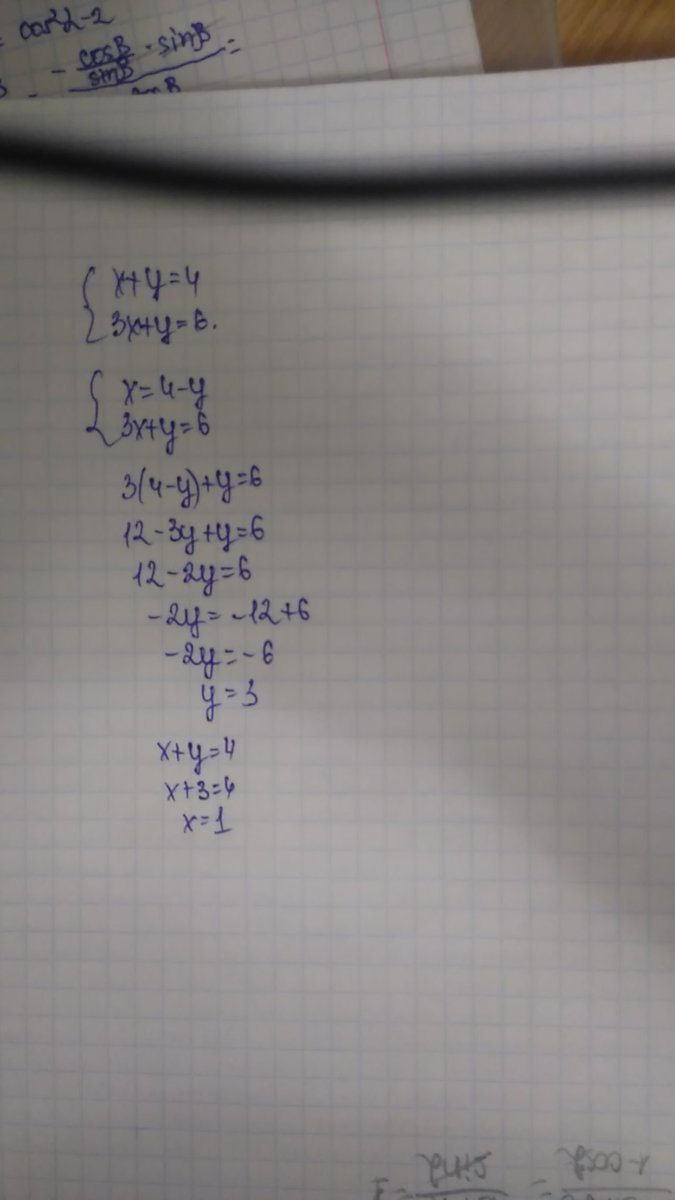 = cos²α-2
- cosβ/sinβ · sinβ =
{ x+y=4
3x+y=6.
{ x=4-y
3x+y=6
3(4-y)+y=6
12-3y+y=6
12-2y=6
-2y=-12+6
-2y=-6
y=3
x+y=4
x+3=4
x=1